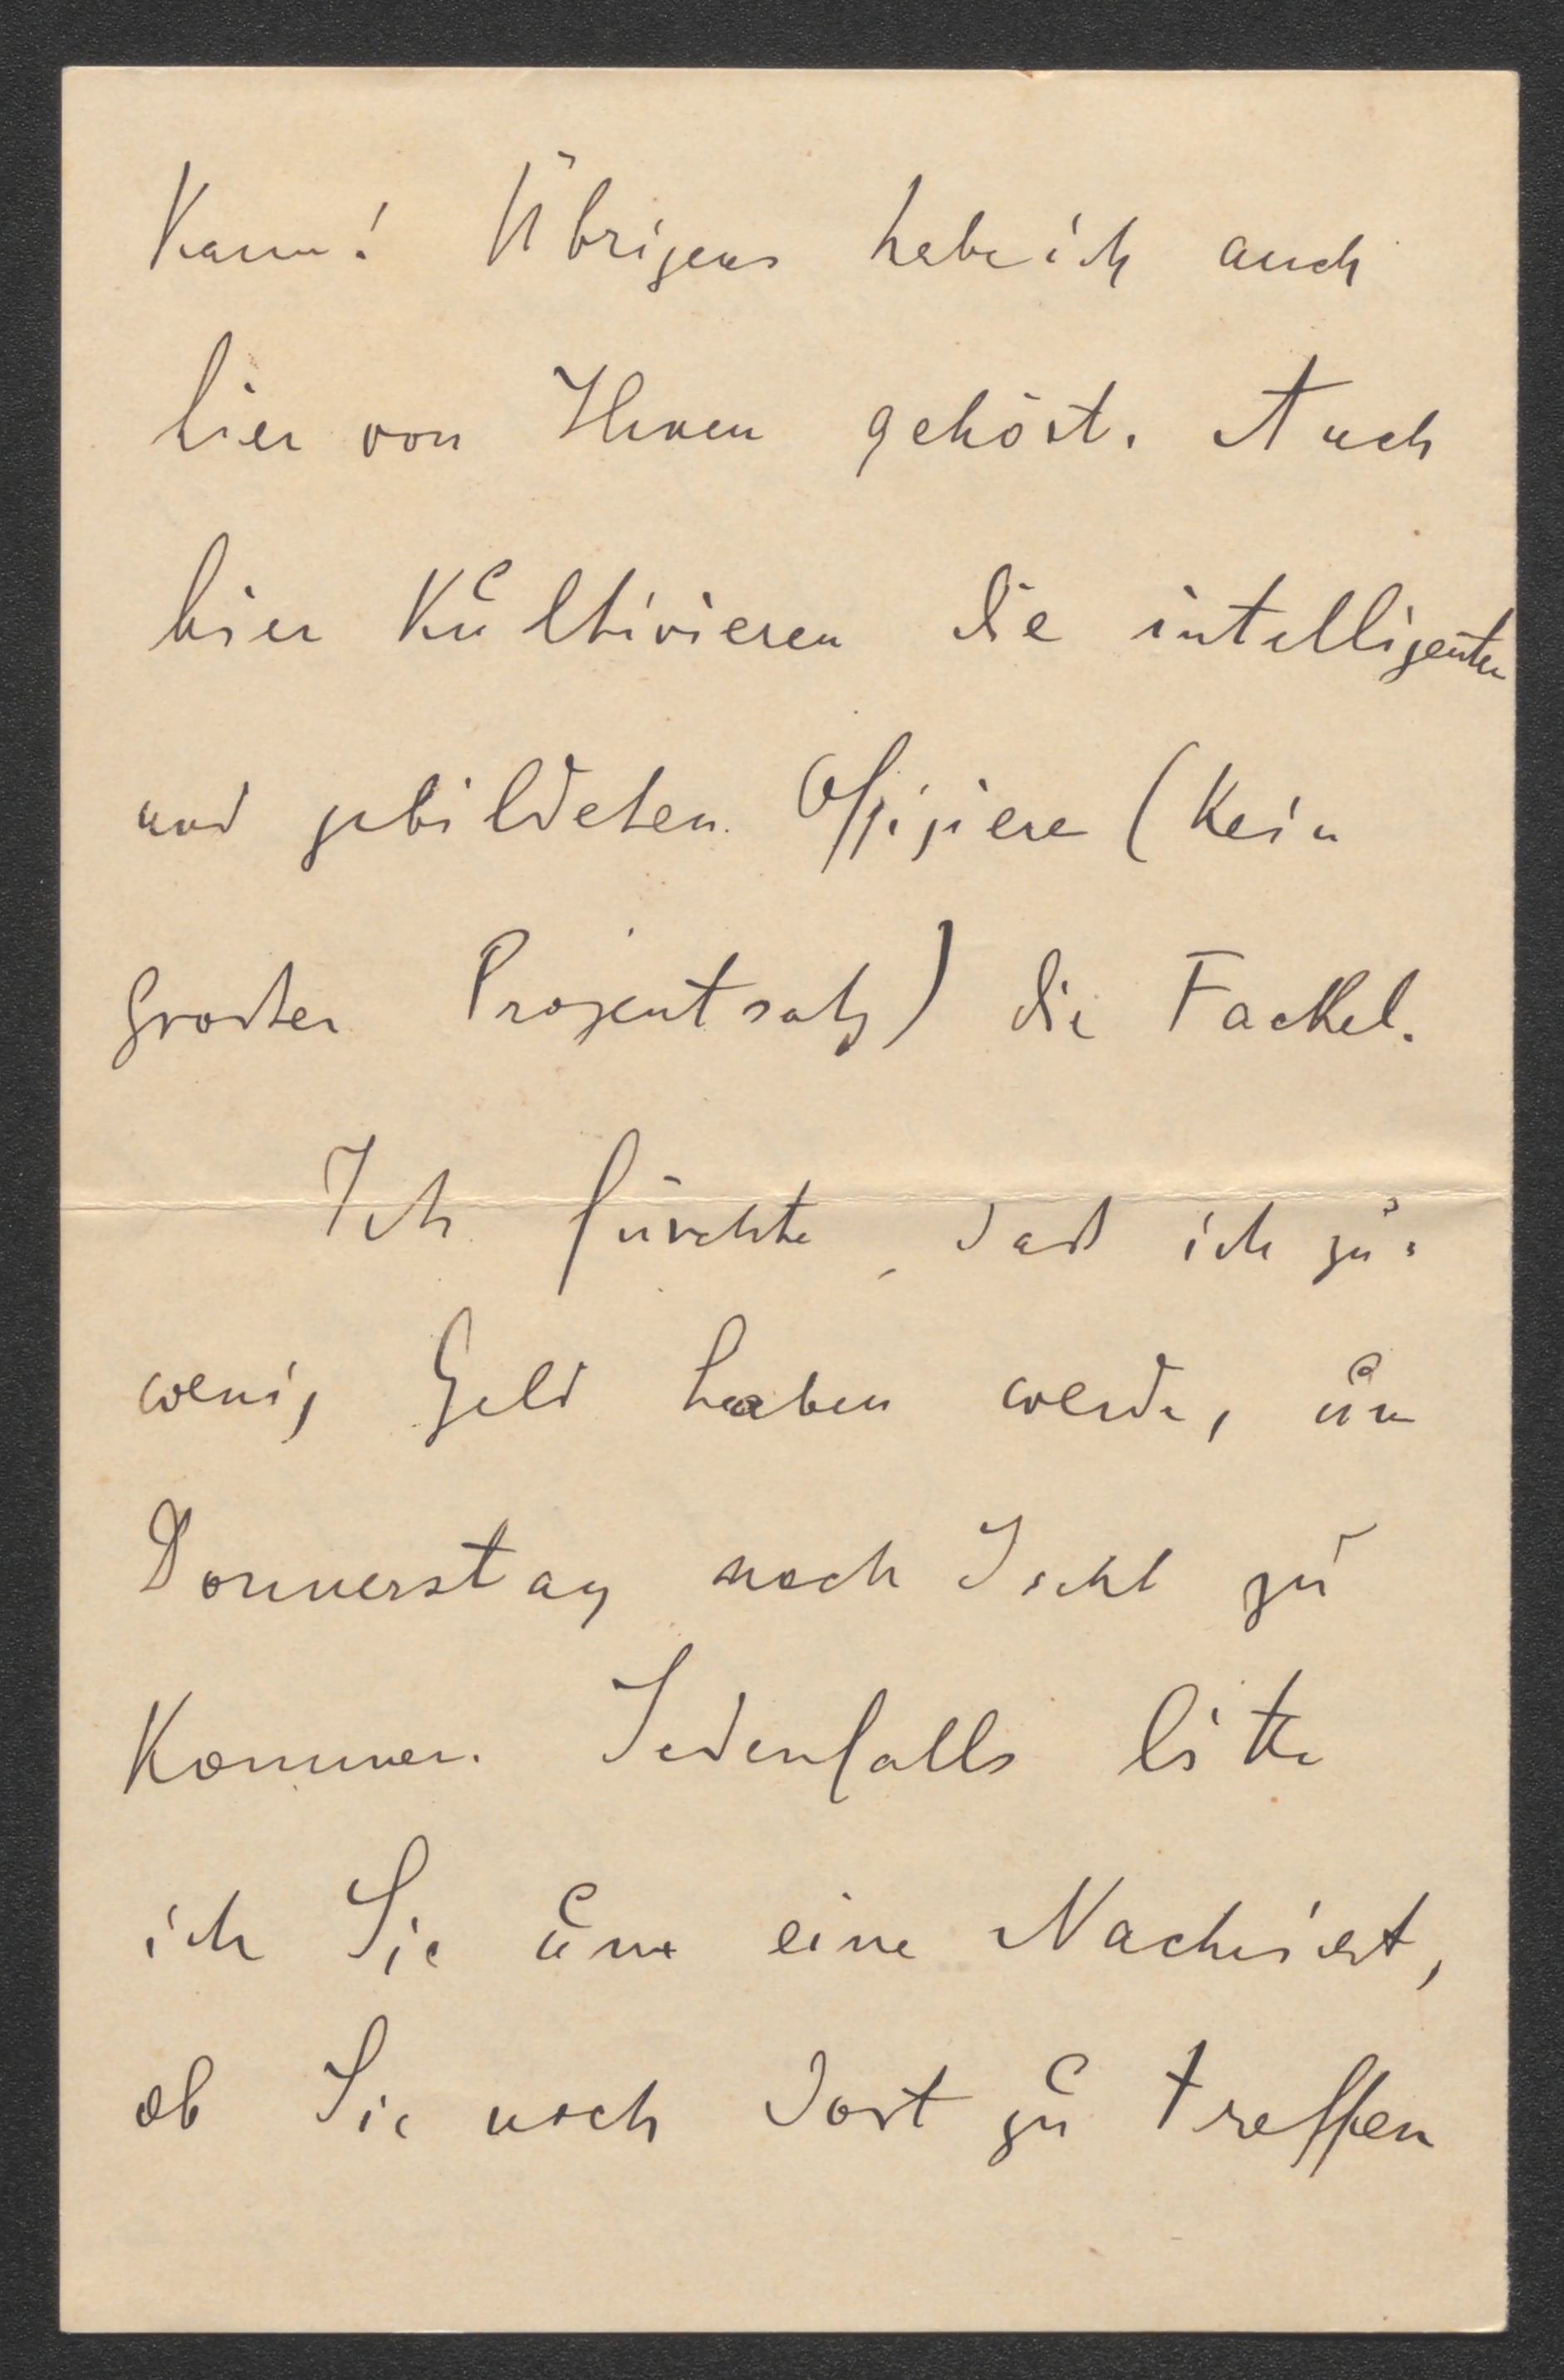 kann! Übrigens habe ich auch
hier von Ihnen gehört. Auch
hier kultivieren die intelligenten
und gebildeten Offiziere (kein
großer Prozentsatz) die Fackel.
Ich fürchte, daß ich zu
wenig Geld haben werde, um
Donnerstag nach Ischl zu
kommen. Jedenfalls bitte
ich Sie um eine Nachricht,
ob Sie noch dort zu treffen